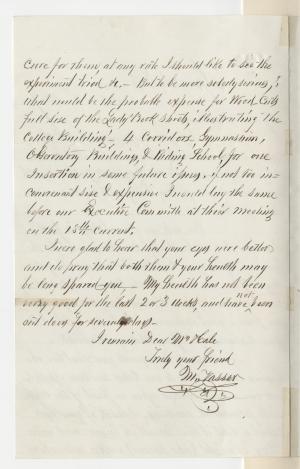 cure for them, at any rate I should like to see the
experiment tried &c. – But to be more soberly serious,
what would be the probable expense for Wood Cuts
full size of the Lady Book sheets, illustrating the
College Building – 4 Corridors, Gymnasium,
Observatory Building, & Riding School, for one
Insertion in some future issue, if not too in-
convenient size & expensive I would lay the same
before our Executive Committe at their meeting
on the 15th Current.
I was glad to hear that your eyes were better
and do pray that both them & your health may
be long spared you – My health has not been
very good for the last 2 or 3 weeks, and have not been
out doors for several days –
I remain Dear Mrs Hale
Truly your friend
M. Vassar